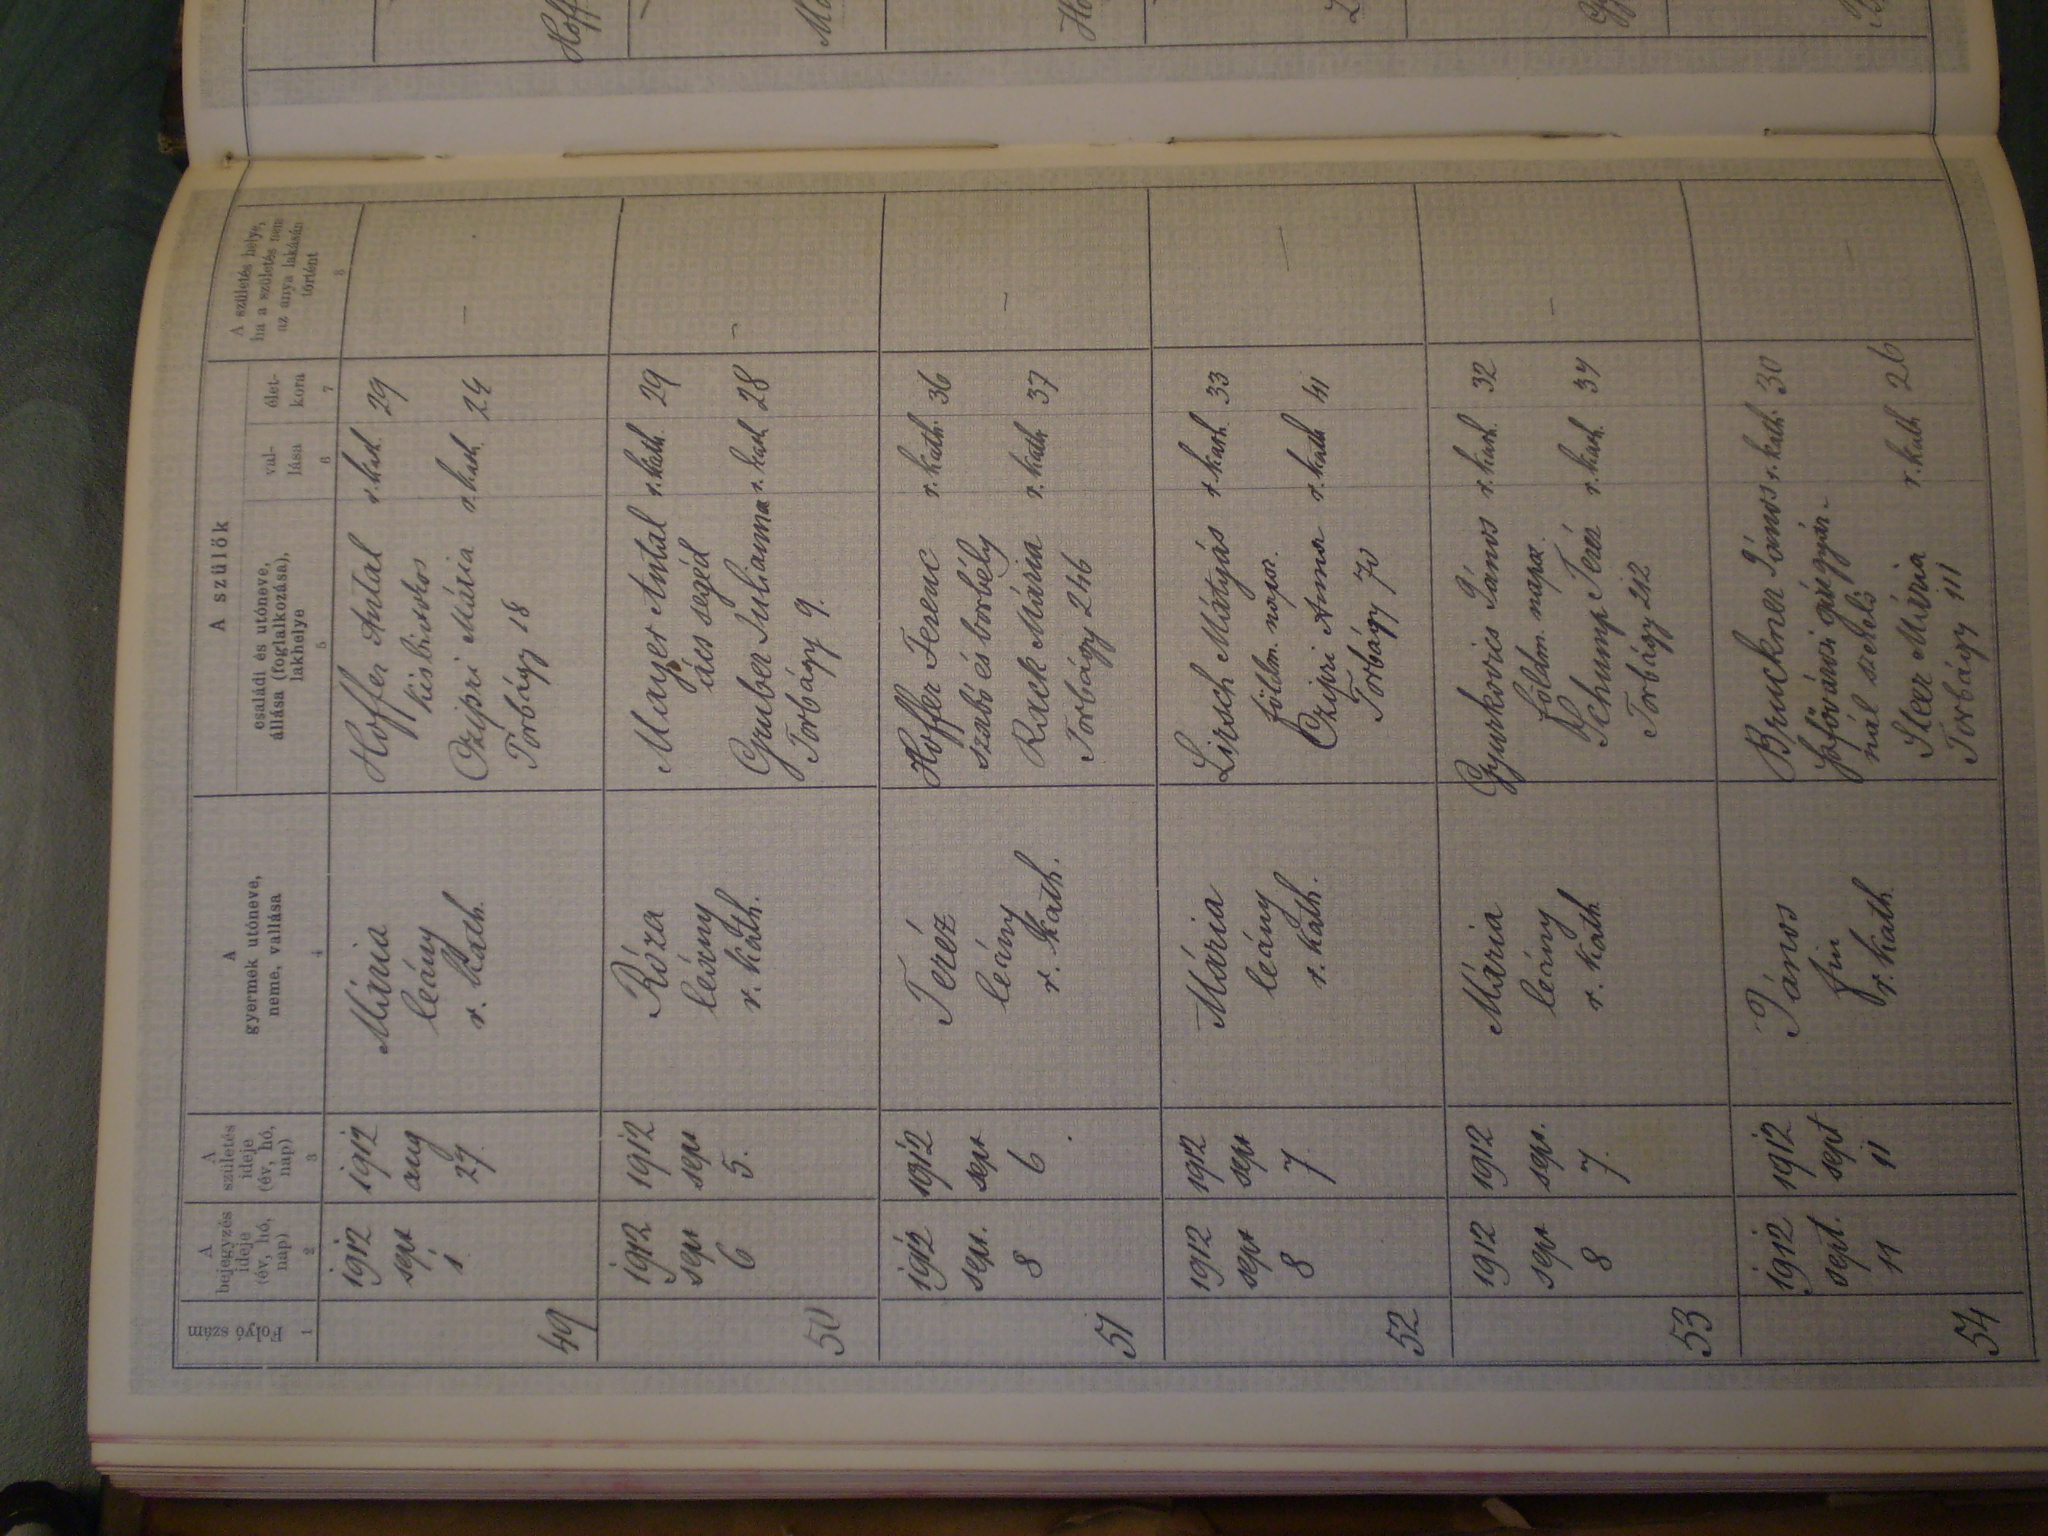 A szülők
Folyó szám
A
bejegyzés
ideje
(év, hó,
nap)
A
születés
ideje
(év, hó,
nap)
A
gyermek utóneve,
neme, vallása
családi és utóneve,
állása (foglalkozása),
lakhelye
val-
lása
élet-
kora
A születés helye,
ha a születés nem
az anya lakásán
történt
1
2
3
4
5
6
7
8
49
1912
sept
1
1912
aug
29.
Mária
leány
r. kath.
Hoffer Antal r. kath. 29
kisbirtokos
Czipri Mária r. kath. 24
Torbágy 18
–
50
1912
sept
6
1912
sept
5.
Róza
leány
r. kath.
Mayer Antal r. kath. 29
ács segéd
Gruber Julianna r. kath. 28
Torbágy 9.
–
51
1912
sept.
8
1912
sept
6
Teréz
leány
r. kath.
Hoffer Ferenc r. kath. 36
szabó és borbély
Rack Mária r. kath. 37
Torbágy 246
–
52
1912
sept
8
1912
sept
7
Mária
leány
r. kath.
Lirsch Mátyás r. kath. 33
földm. napsz.
Czipri Anna r. kath 41
Torbágy 70
–
53
1912
sept
8
1912
sept.
7.
Mária
leány
r. kath.
Gyurkovis János r. kath. 32
földm. napsz.
Schump Teréz r. kath.
Torbágy 212
–
54
1912
sept.
11
1912
sept
11
János
fiu
r. kath.
Bruckner János r. kath. 30
székesfővárosi gázgyár-
nál
Mária r. kath 26
Torbágy 111
–
Hoff